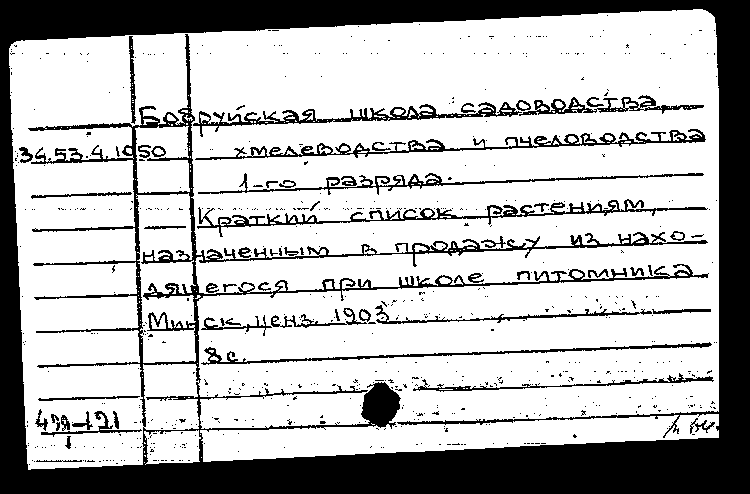 Бобруйская школа садоводства,
34.53.4.1050 хмелеводства и пчеловодства
1-го разряда.
Краткий список растениям,
назначенным в продажу из нахо-
дящегося при школе питомника
Минск, ценз. 1903
8 с.